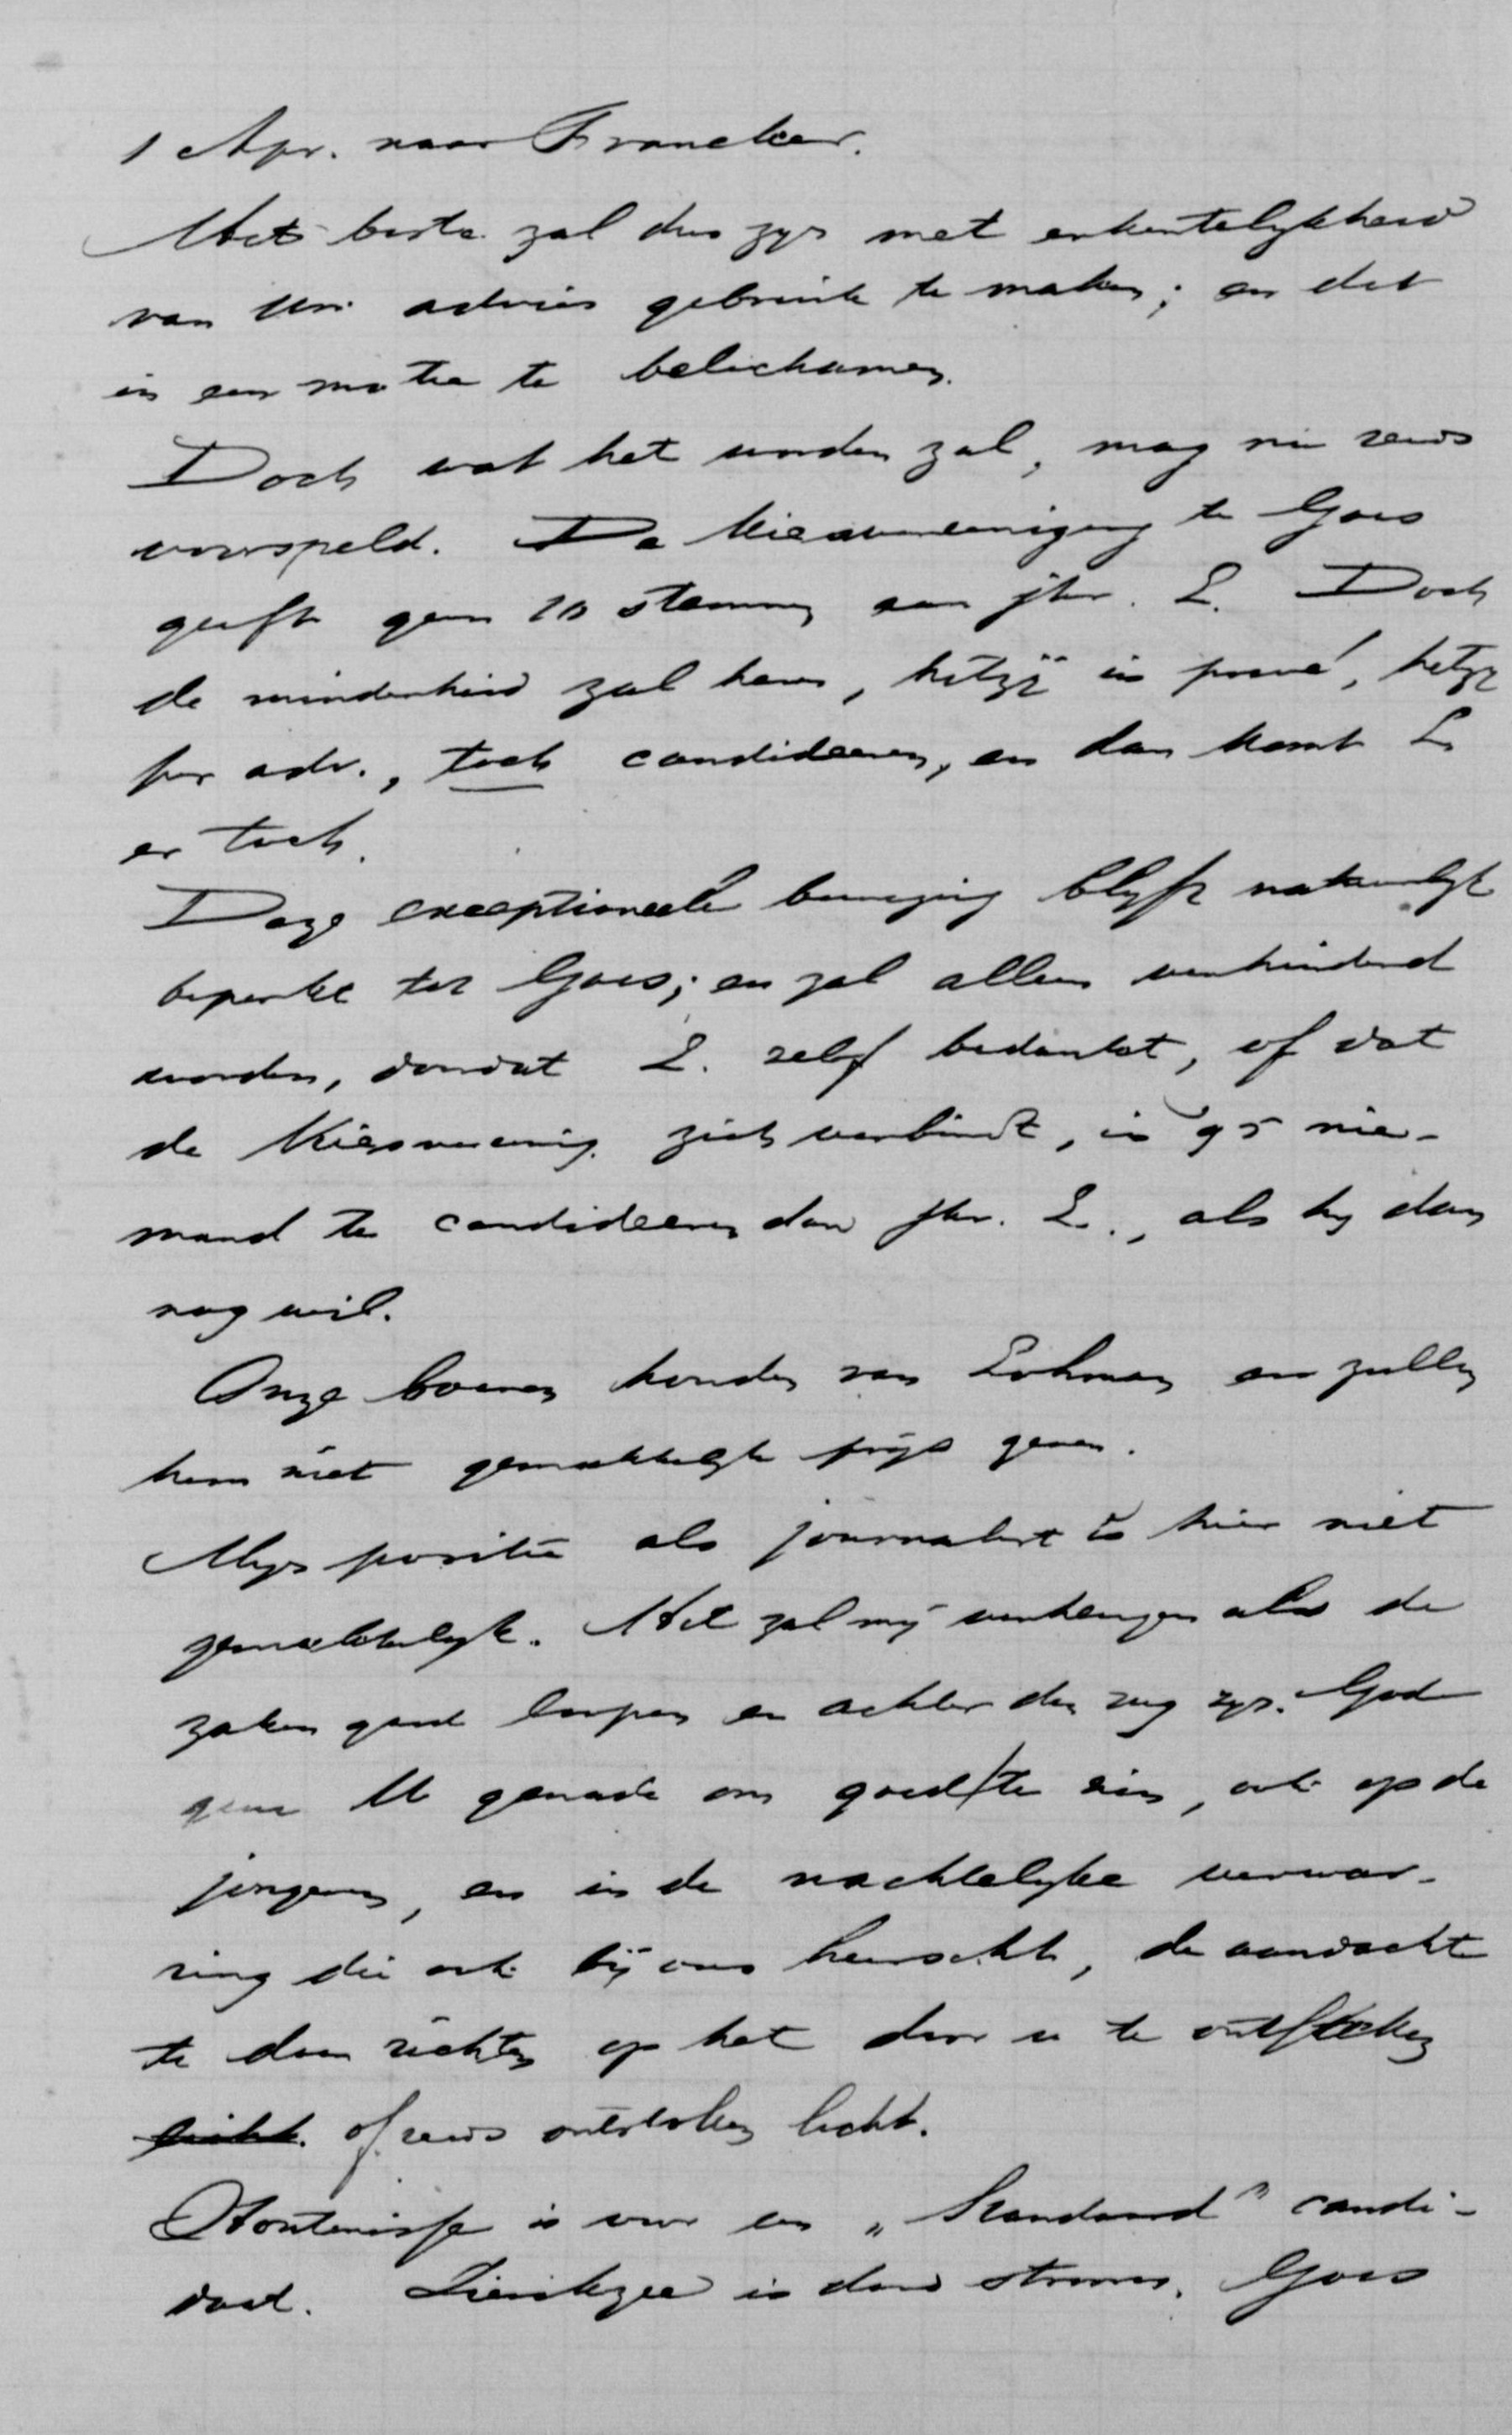 1 Apr. naar Franeker.
Het beste zal dus zijn met erkentelijkheid
van Uw advies gebruik te maken; en dit
in een motie te belichamen.
Doch wat het worden zal, mag nu reeds
voorspeld. De Kiesvereeniging te Goes
geeft geen 10 stemmen aan jhr. L. Doch
de minderheid zal hem, hetzij in privé, hetzij
per adv., toch candideeren, en dan komt L
er toch.
Deze exceptioneele beweging blijft natuurlijk
beperkt tot Goes; en zal alleen verhinderd
worden, doordat L. zelf bedankt, of dat
de Kiesvereenig. zich verbindt, in '95 nie-
mand te candideeren dan jhr. L., als hij dan
nog wil.
Onze boeren houden van Lohman en zullen
hem niet gemakkelijk prijs geven.
Mijn positie als journalist is hier niet
gemakkelijk. Het zal mij verheugen als de
zaken goed loopen en achter den rug zijn. God
geve U genade om goed te zien, ook op de
jongeren, en in de nachtelijke verwar-
ring die ook bij ons heerscht, de aandacht
te doen richten op het door u te ontsteken
licht. of reeds ontstoken licht.
Hontenisse is voor een „Standaard" candi-
daat. Zierikzee is door stroom. Goes